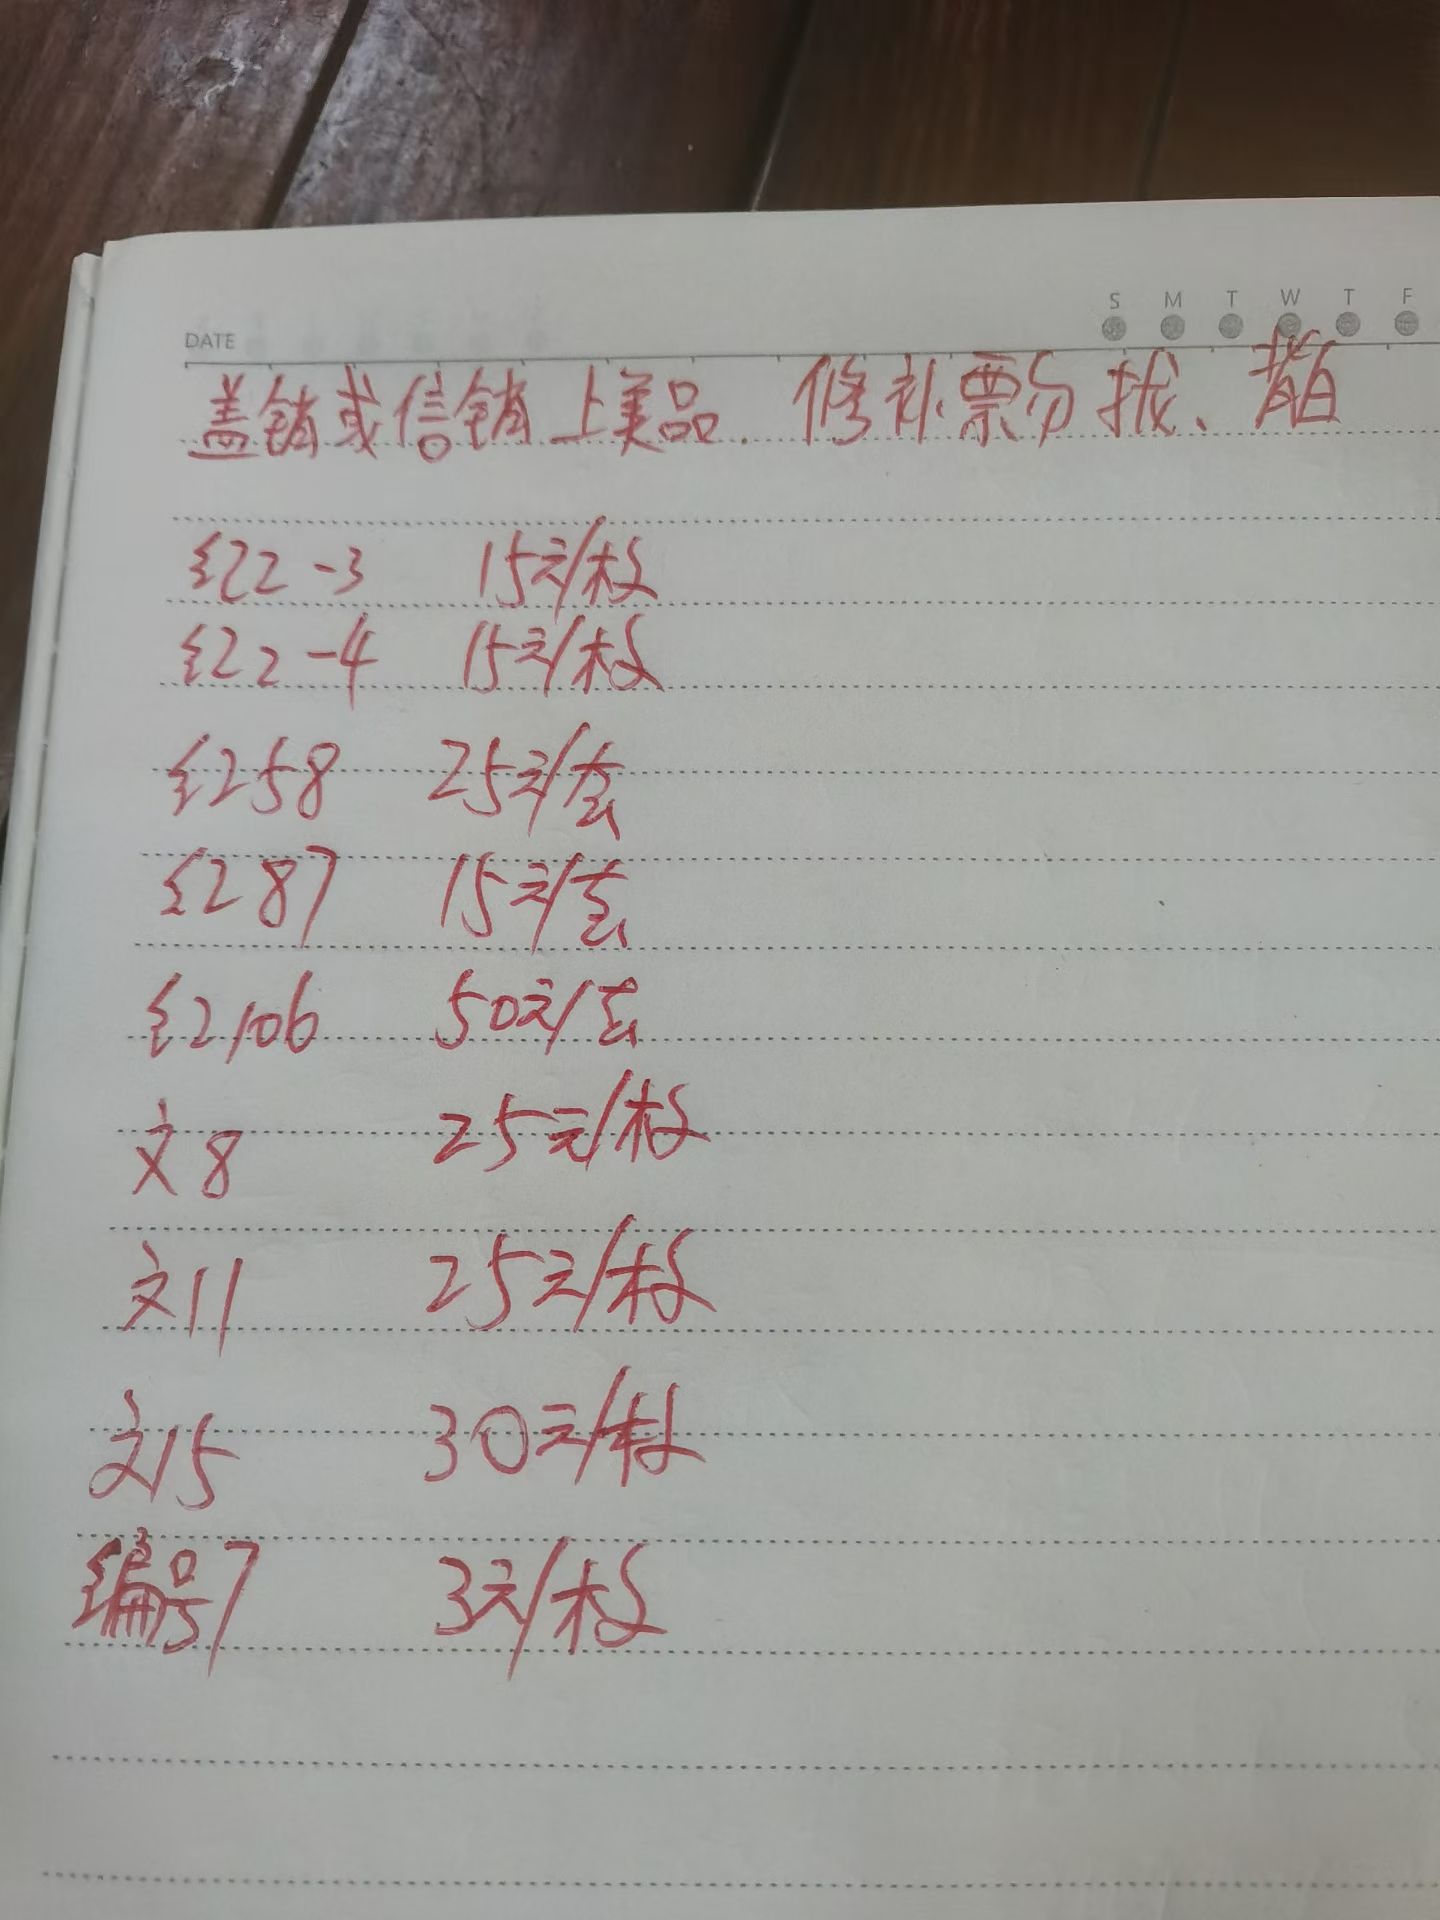 S M T W T F
DATE
盖销或信销上美品.修补票勿扰、背白
纪2-3 15元/枚
纪2-4 15元/枚
纪58 25元/套
纪87 15元/套
纪106 50元/套
文8 25元/枚
文11 25元/枚
文15 30元/枚
编号7 3元/枚